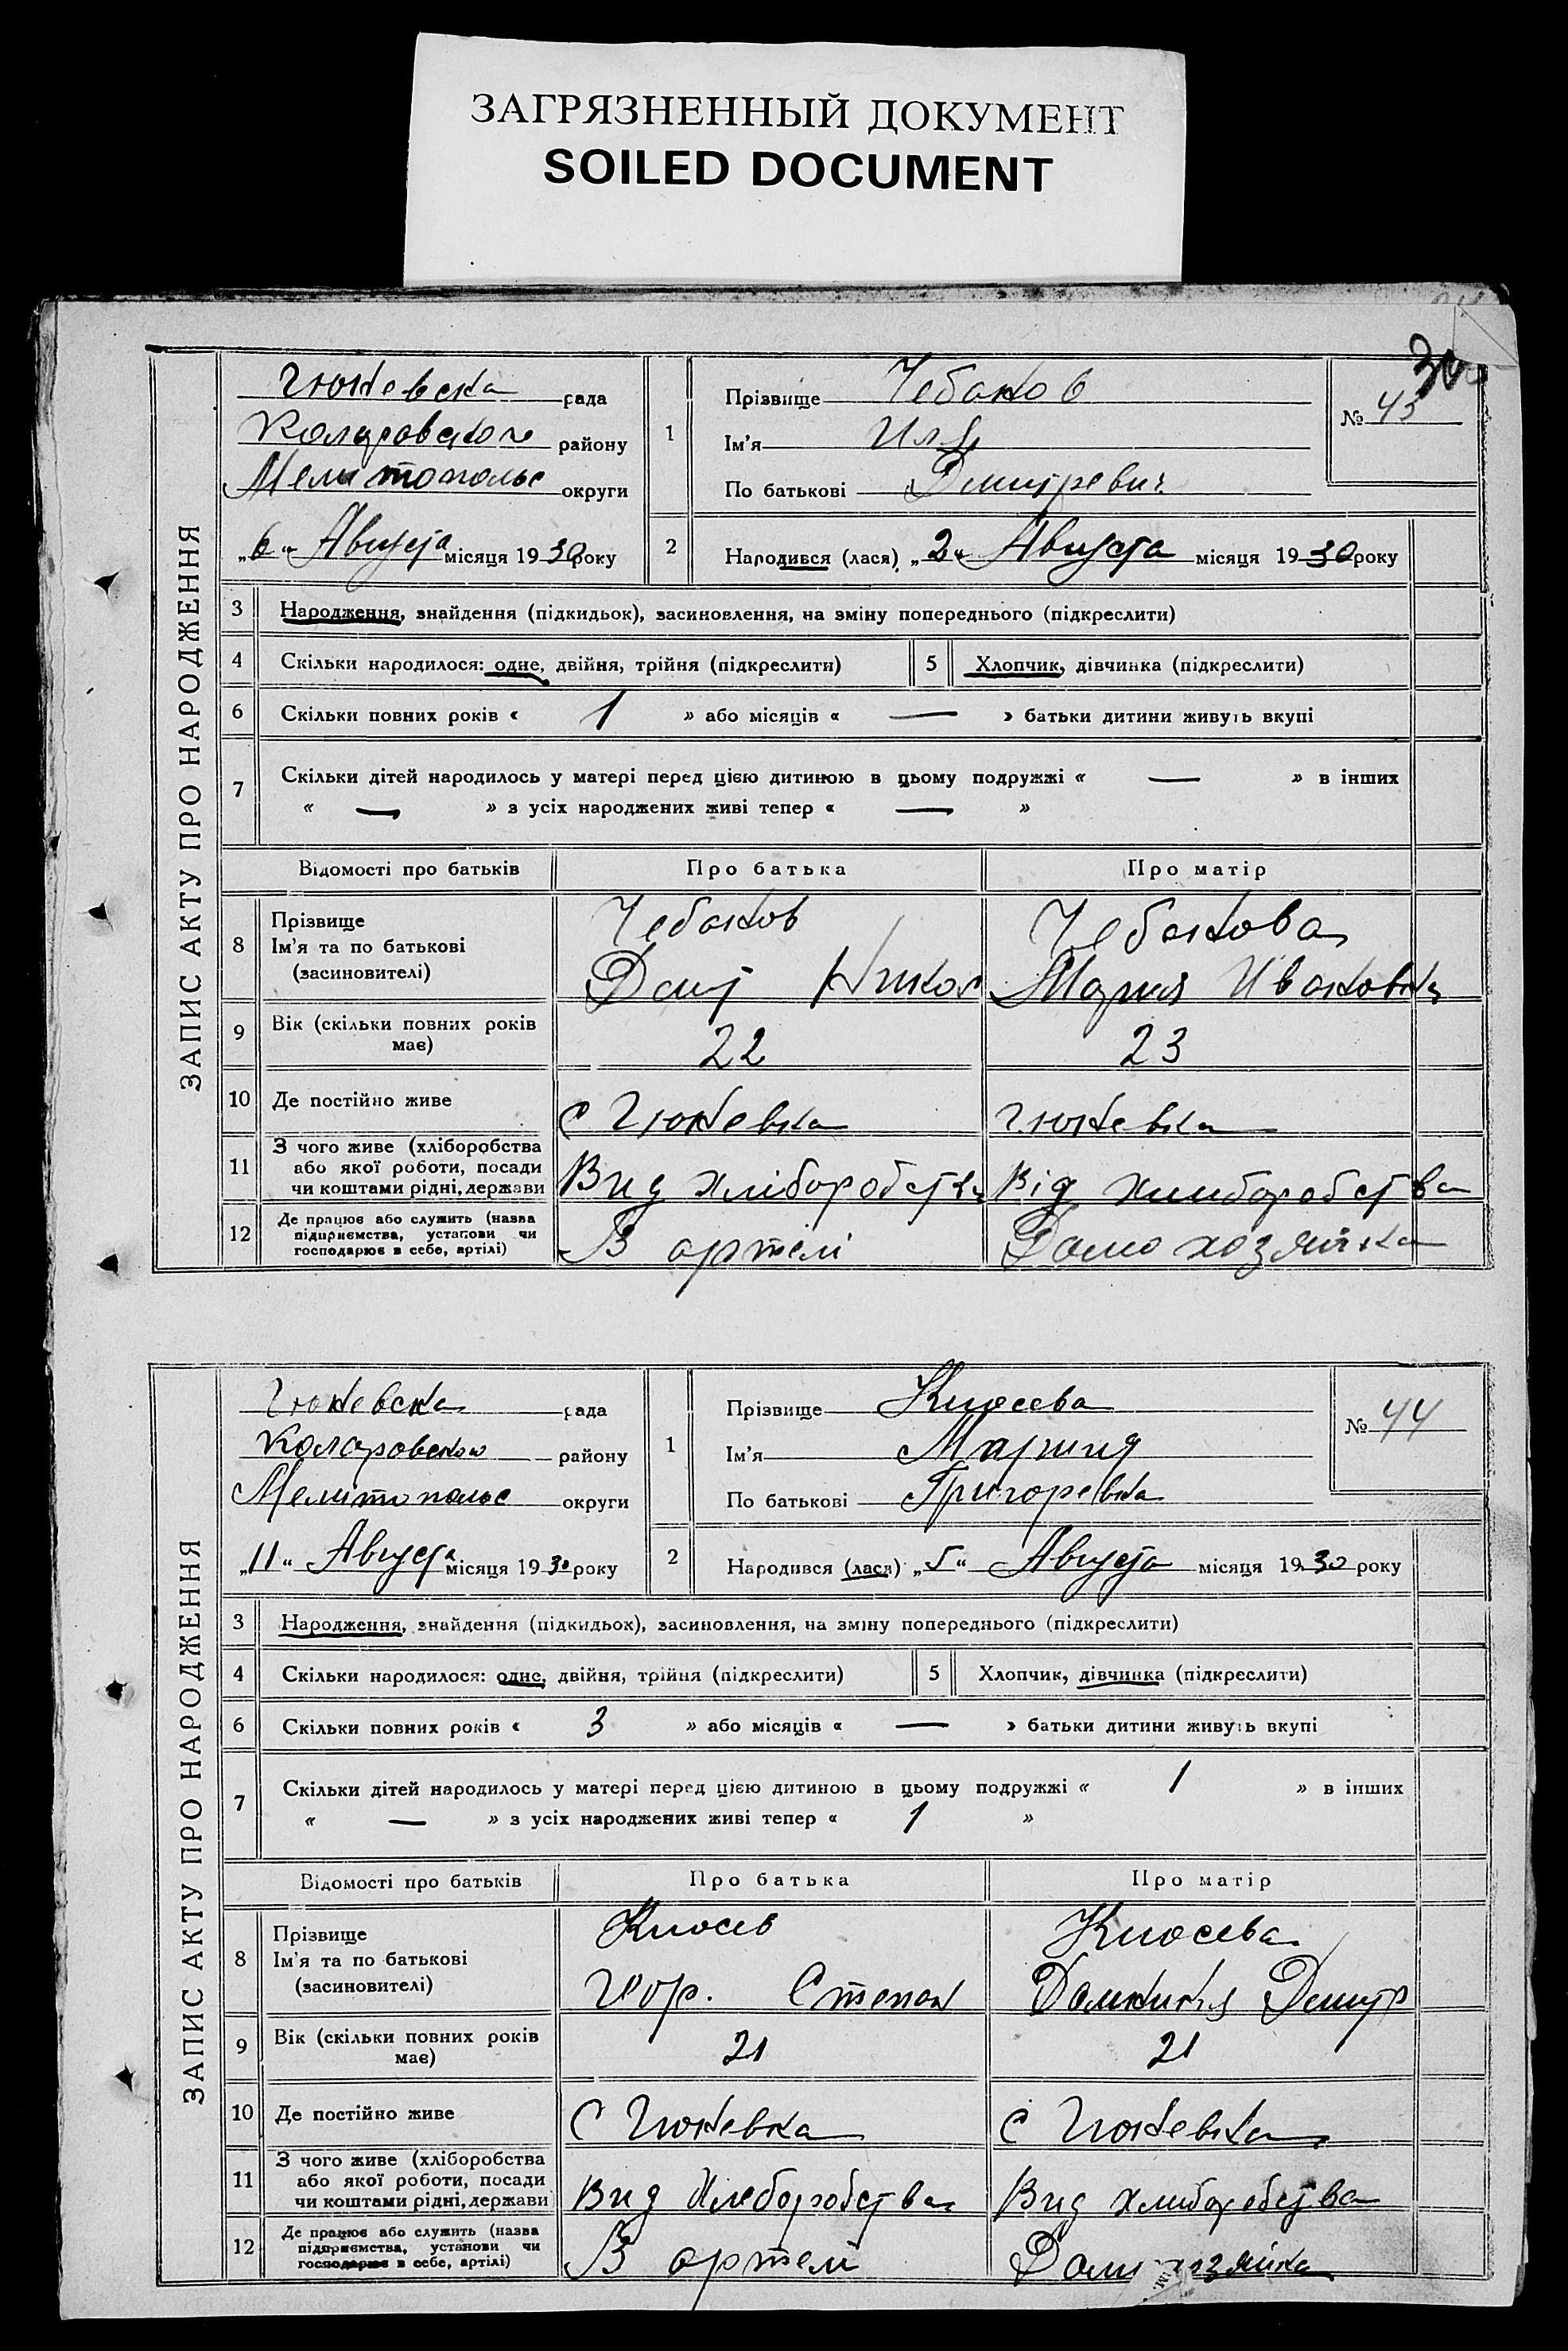 ЗАГРЯЗНЕННЫЙ ДОКУМЕНТ
SOILED DOCUMENT
ЗАПИС АКТУ ПРО НАРОДЖЕННЯ
Гюневска рада
Коларовского району
Мелитопольс округи
„6“ Августа місяця 1930 року
1
Прізвище Чебанов
Ім'я Илья
По батькові Дмитревич
№ 43
2
Народився (лася) „2“ Августа місяця 1930 року
3 Народження, знайдення (підкидьок), засиновлення, на зміну попереднього (підкреслити)
4 Скільки народилося: одне, двійня, трійня (підкреслити) 5 Хлопчик, дівчинка (підкреслити)
6 Скільки повних років « 1 » або місяців « — » батьки дитини живуть вкупі
7 Скільки дітей народилось у матері перед цією дитиною в цьому подружжі « — » в інших
« — » з усіх народжених живі тепер « — »
Відомості про батьків Про батька Про матір
8 Прізвище
Ім'я та по батькові
(засиновителі)
Чебанов
Дмит Никол
Чебанова
Мария Ивановна
9 Вік (скільки повних років
має) 22 23
10 Де постійно живе С Гюневка Гюневка
11 З чого живе (хліборобства
або якої роботи, посади
чи коштами рідні, держави
Вид хліборобства Від хлиборобства
12 Де працює або служить (назва
підприємства, установи чи
господарює в себе, артілі)
В артелі Домохозяйка
ЗАПИС АКТУ ПРО НАРОДЖЕННЯ
Гюневска рада
Коларовског району
Мелитопольс округи
„11“ Августа місяця 1930 року
1
Прізвище Кюсева
Ім'я Мария
По батькові Григоревна
№ 44
2
Народився (лася) „5“ Августа місяця 1930 року
3 Народження, знайдення (підкидьок), засиновлення, на зміну попереднього (підкреслити)
4 Скільки народилося: одне, двійня, трійня (підкреслити) 5 Хлопчик, дівчинка (підкреслити)
6 Скільки повних років « 3 » або місяців « — » батьки дитини живуть вкупі
7 Скільки дітей народилось у матері перед цією дитиною в цьому подружжі « 1 » в інших
« — » з усіх народжених живі тепер « 1 »
Відомості про батьків Про батька Про матір
8 Прізвище
Ім'я та по батькові
(засиновителі)
Кюсев
Степан
Кюсева
Домникия Дмитр
9 Вік (скільки повних років
має) 21 21
10 Де постійно живе С Гюневка С Гюневка
11 З чого живе (хліборобства
або якої роботи, посади
чи коштами рідні, держави
Вид Хлеборобства Вид хлиборобства
12 Де працює або служить (назва
підприємства, установи чи
господарює в себе, артілі)
В артелі